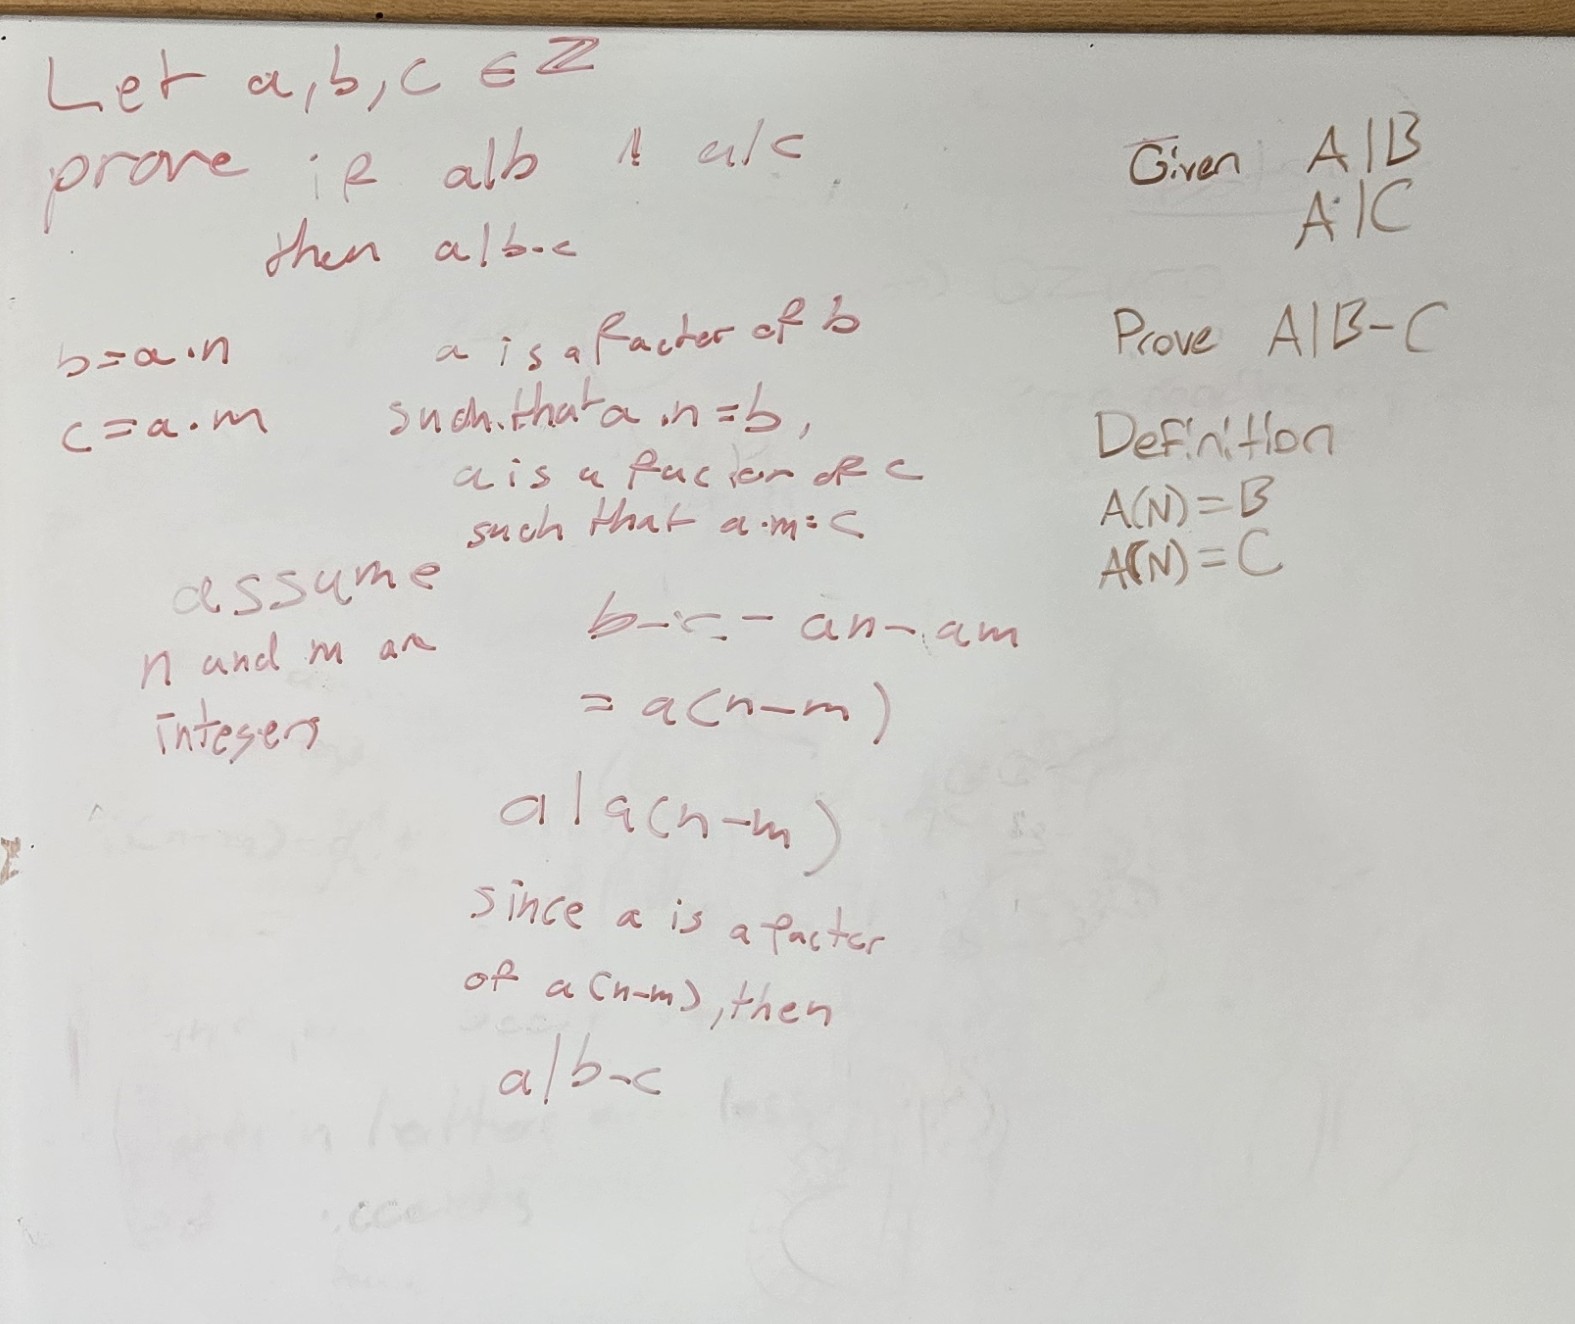 Let a, b, c ∈ ℤ
prove if a|b & a|c
then a|b-c
b=a·n
c=a·m
a is a factor of b
such that a·n=b,
a is a factor of c
such that a·m=c
assume
n and m are
integers
b-c = an-am
= a(n-m)
a | a(n-m)
since a is a factor
of a(n-m), then
a|b-c
Given A|B
A|C
Prove A|B-C
Definition
A(N)=B
A(N)=C